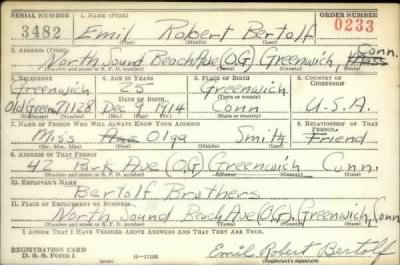 SERIAL NUMBER 1. NAME (Print) ORDER NUMBER
3482 Emil Robert Bertolf 0233
(First) (Middle) (Last)
2. ADDRESS (Print) Conn.
North Sound Beach Ave (O.G) Greenwich, Mass
(Number and street or R. F. D. number) (Town) (County) (State)
3. TELEPHONE 4. AGE IN YEARS 5. PLACE OF BIRTH 6. COUNTRY OF CITIZENSHIP
Greenwich 25 Greenwich
DATE OF BIRTH (Town or county)
Old Green 71128 Dec 9 1914 Conn U.S.A.
(Exchange) (Number) (Mo.) (Day) (Yr.) (State or country)
7. NAME OF PERSON WHO WILL ALWAYS KNOW YOUR ADDRESS 8. RELATIONSHIP OF THAT PERSON
Miss Olga Smith Friend
(Mr., Mrs., Miss) (First) (Middle) (Last)
9. ADDRESS OF THAT PERSON
42 Park Ave (O.G) Greenwich Conn.
(Number and street or R. F. D. number) (Town) (County) (State)
10. EMPLOYER'S NAME
Bertolf Brothers
11. PLACE OF EMPLOYMENT OR BUSINESS
North Sound Beach Ave (O.G). Greenwich, Conn
(Number and street or R. F. D. number) (Town) (County) (State)
I AFFIRM THAT I HAVE VERIFIED ABOVE ANSWERS AND THAT THEY ARE TRUE.
REGISTRATION CARD
D. S. S. Form 1 Emil Robert Bertolf
(Registrant's signature)